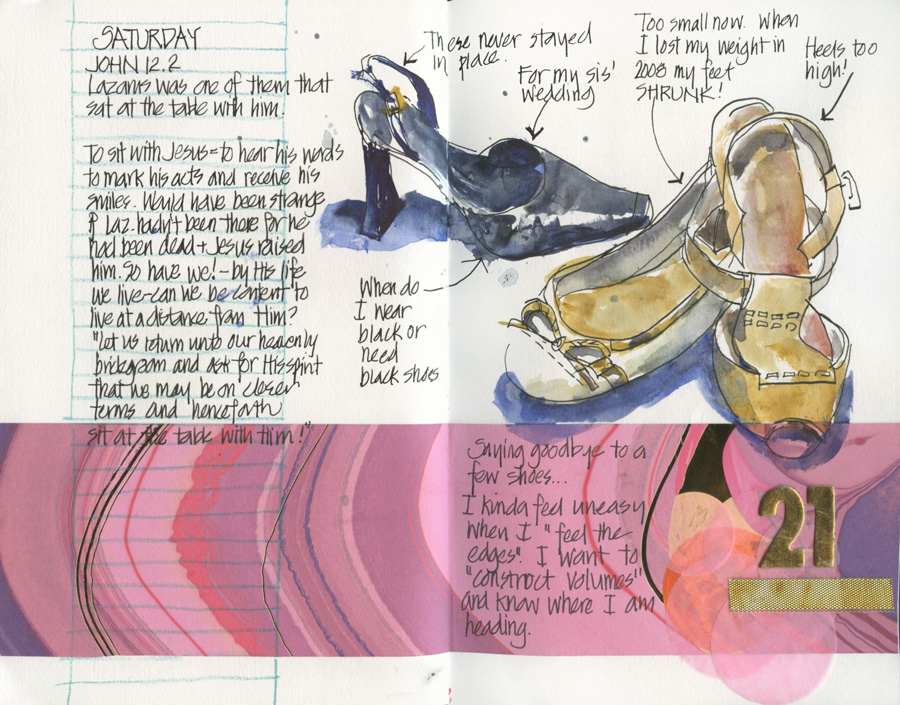 SATURDAY
JOHN 12.2
Lazarus was one of them that
sat at the table with him.
To sit with Jesus = to hear his words
to mark his acts and receive his
smiles. Would have been strange
if Laz. hadn't been there for he
had been dead + Jesus raised
him. So have we! - by His life
we live - can we be content to
live at a distance from Him?
"Let us return unto our heavenly
bridegroom and ask for His spirit
that we may be on closer
terms and henceforth
sit at the table with Him!"
These never stayed
in place.
For my sis'
wedding
Too small now. When
I lost my weight in
2008 my feet
SHRUNK!
Heels too
high!
When do
I wear
black or
need
black shoes
Saying goodbye to a
few shoes...
I kinda feel uneasy
when I "feel the
edges". I want to
"construct volumes"
and know where I am
heading.
21